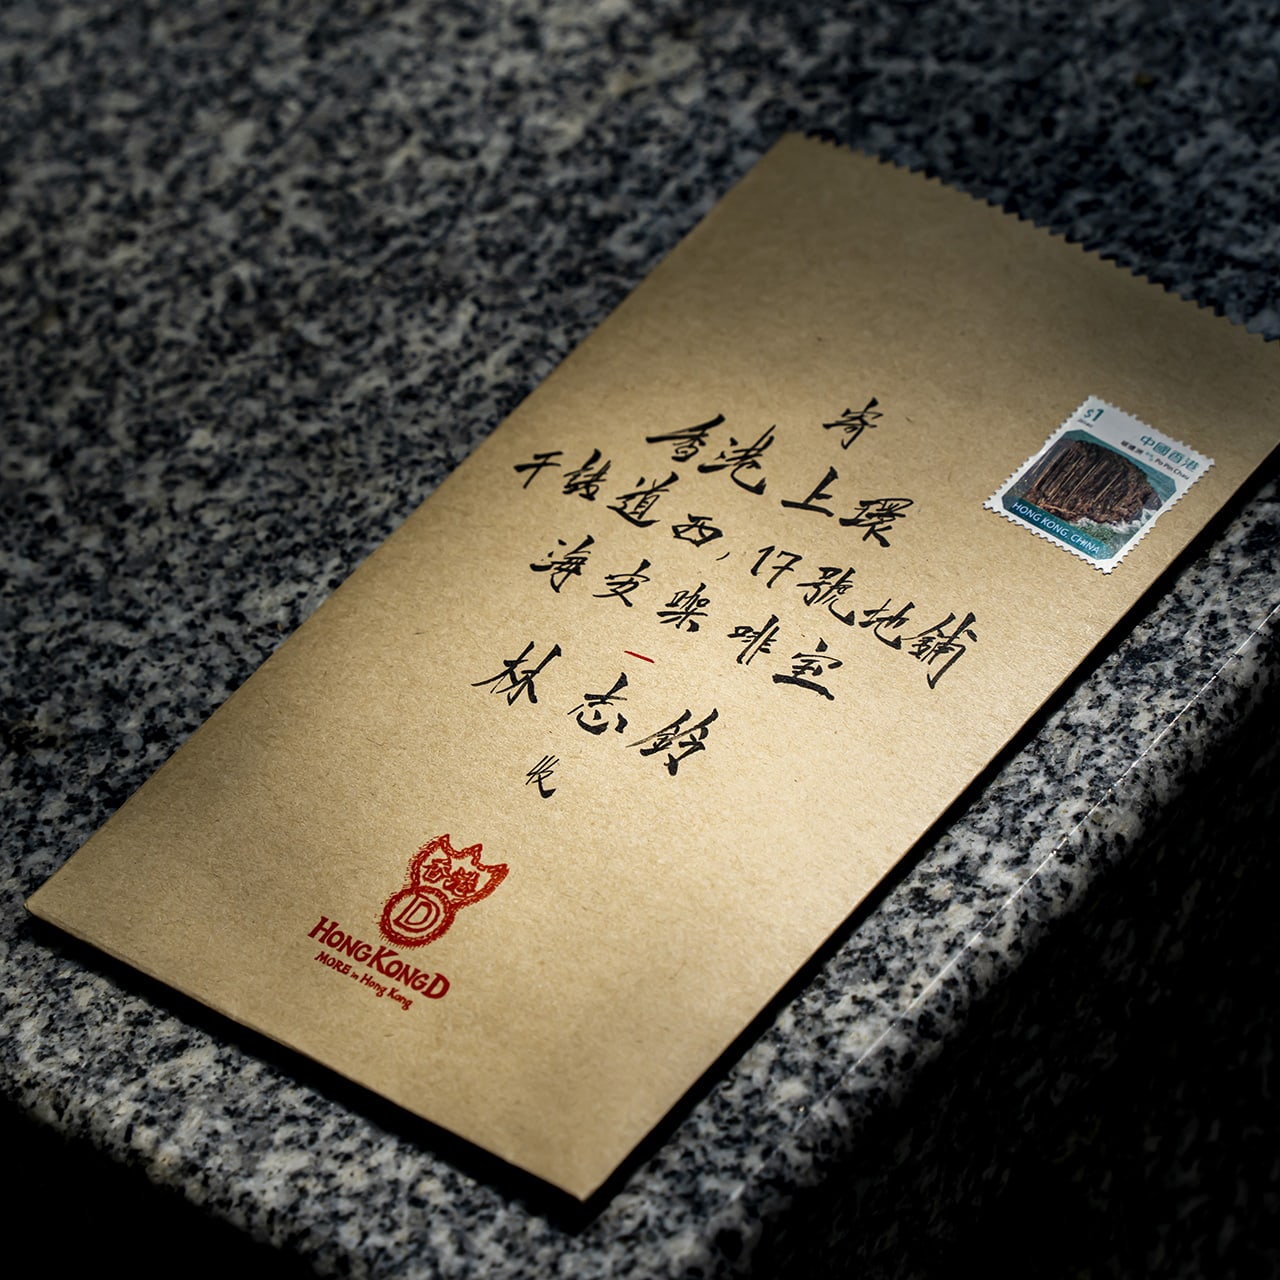 寄
香港上環
干諾道西,17號地鋪
海安架啡室
林志鈴
收
$1
中國香港
破邊洲 Po Pin Chau
HONG KONG, CHINA
香港
D
HONGKONGD
MORE in Hong Kong